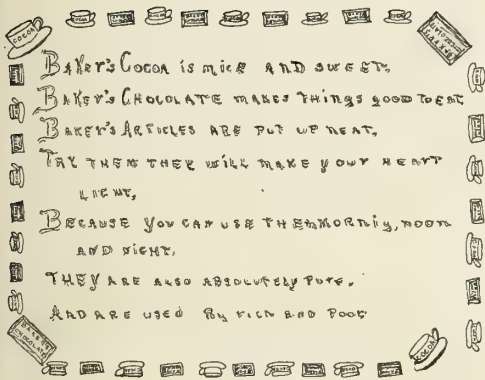 COCOA
BAKER'S CHOCOLATE
BAKER'S COCOA is nice AND SWEET,
BAKER'S CHOCOLATE MAKES THINGS good TO EAT
BAKER'S ARTICLES ARE PUT UP NEAT,
TRY THEM THEY WILL MAKE YOUR HEART
LIGHT,
BECAUSE YOU CAN USE THEM MORNiy, NOON
AND NIGHT,
THEY ARE ALSO ABSOLUTELY PURE,
AND ARE USED By RICH AND POOR
BAKER'S CHOCOLATE
COCOA